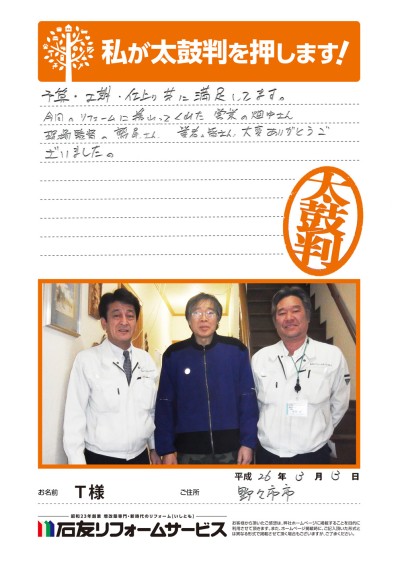 私が太鼓判を押します!
予算・工期・仕上り共に満足してます。
今回のリフォームに携わってくれた 営業の畑中さん
現場監督の さん 業者の皆さん 大変ありがとうご
ざいました。
太鼓判
平成 26 年 3 月 13 日
お名前 T様 ご住所 野々市市
昭和23年創業 増改築専門・新時代のリフォーム[いしとも]
石友リフォームサービス
お客様から頂いたご感想は、弊社ホームページに掲載することを目的に
利用させて頂きます。また、ホームページ掲載時に、ご記入頂いた形式と
は異なる形式で掲載させて頂く場合もございますが、ご了承ください。